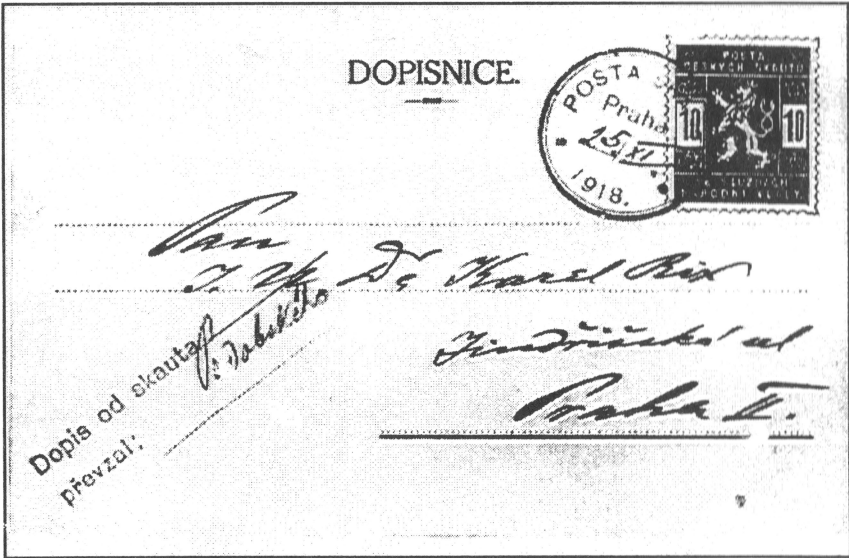 DOPISNICE.
POŠTA
Praha
15/XI
1918.
POŠTA
ČESKÝCH SKAUTŮ
10 10
VE SLUŽBÁCH
NÁRODNÍ VLÁDY.
Pan
Dr Karel Rix
Jindřišská ul
Praha II.
Dopis od skauta
převzal: